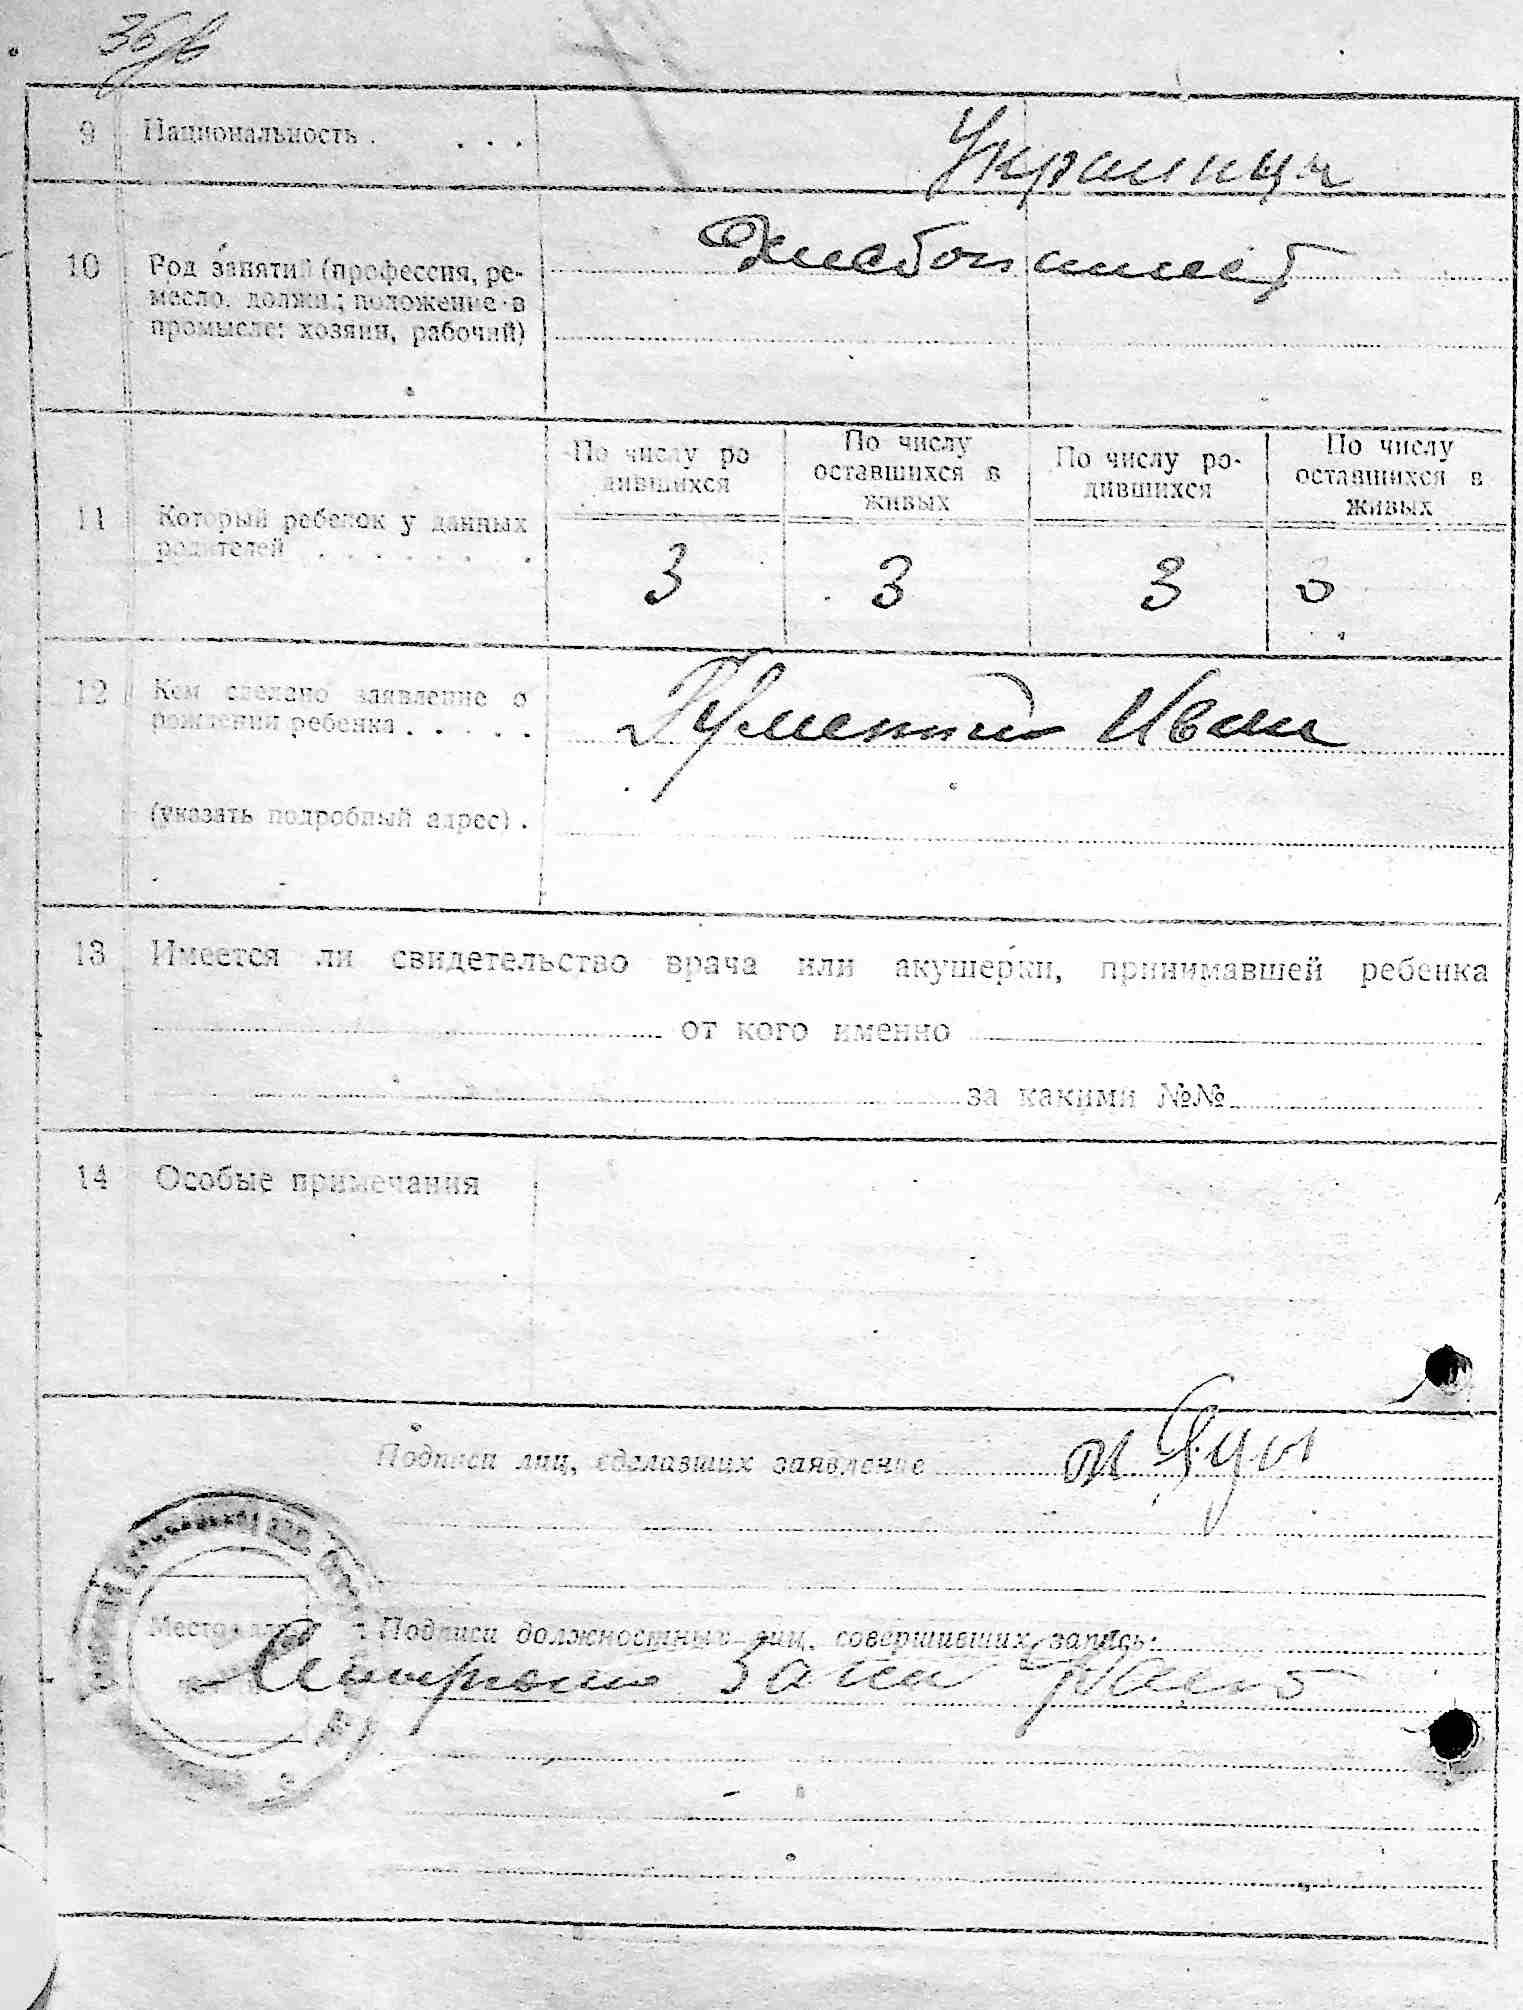 36/в
9 Национальность . . . . Украинцы
10 Род занятий (профессия, ре-
месло, должн.; положение в
промысле: хозяин, рабочий)
Хлебопашест
По числу ро-
дившихся
По числу
оставшихся в
живых
По числу ро-
дившихся
По числу
оставшихся в
живых
11 Который ребенок у данных
родителей . . . . . . .
3 3 3 3
12 Кем сделано заявление о
рождении ребенка . . . . .
Иван
(указать подробный адрес) .
13 Имеется ли свидетельство врача или акушерки, принимавшей ребенка
от кого именно
за какими №№
14 Особые примечания
Подписи лиц, сделавших заявление
Место для
Подписи должностных лиц, совершивших запись: